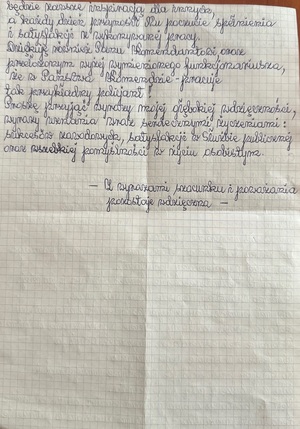 będzie zawsze inspiracją dla innych,
a każdy dzień przynosi Mu poczucie spełnienia
i satysfakcji z wykonywanej pracy.
Dziękuję również Panu Komendantowi oraz
przełożonym wyżej wymienionego funkcjonariusza,
że w Państwa Komendzie pracuje
tak przykładny policjant!
Proszę przyjąć wyrazy mojej głębokiej wdzięczności,
wyrazy uznania wraz z serdecznymi życzeniami:
sukcesów zawodowych, satysfakcji w służbie publicznej
oraz wszelkiej pomyślności w życiu osobistym.
– Z wyrazami szacunku i poważania
pozostaję wdzięczna –